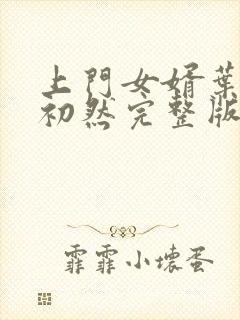 上門女婿葉
初然完整版
霏霏小壞蛋